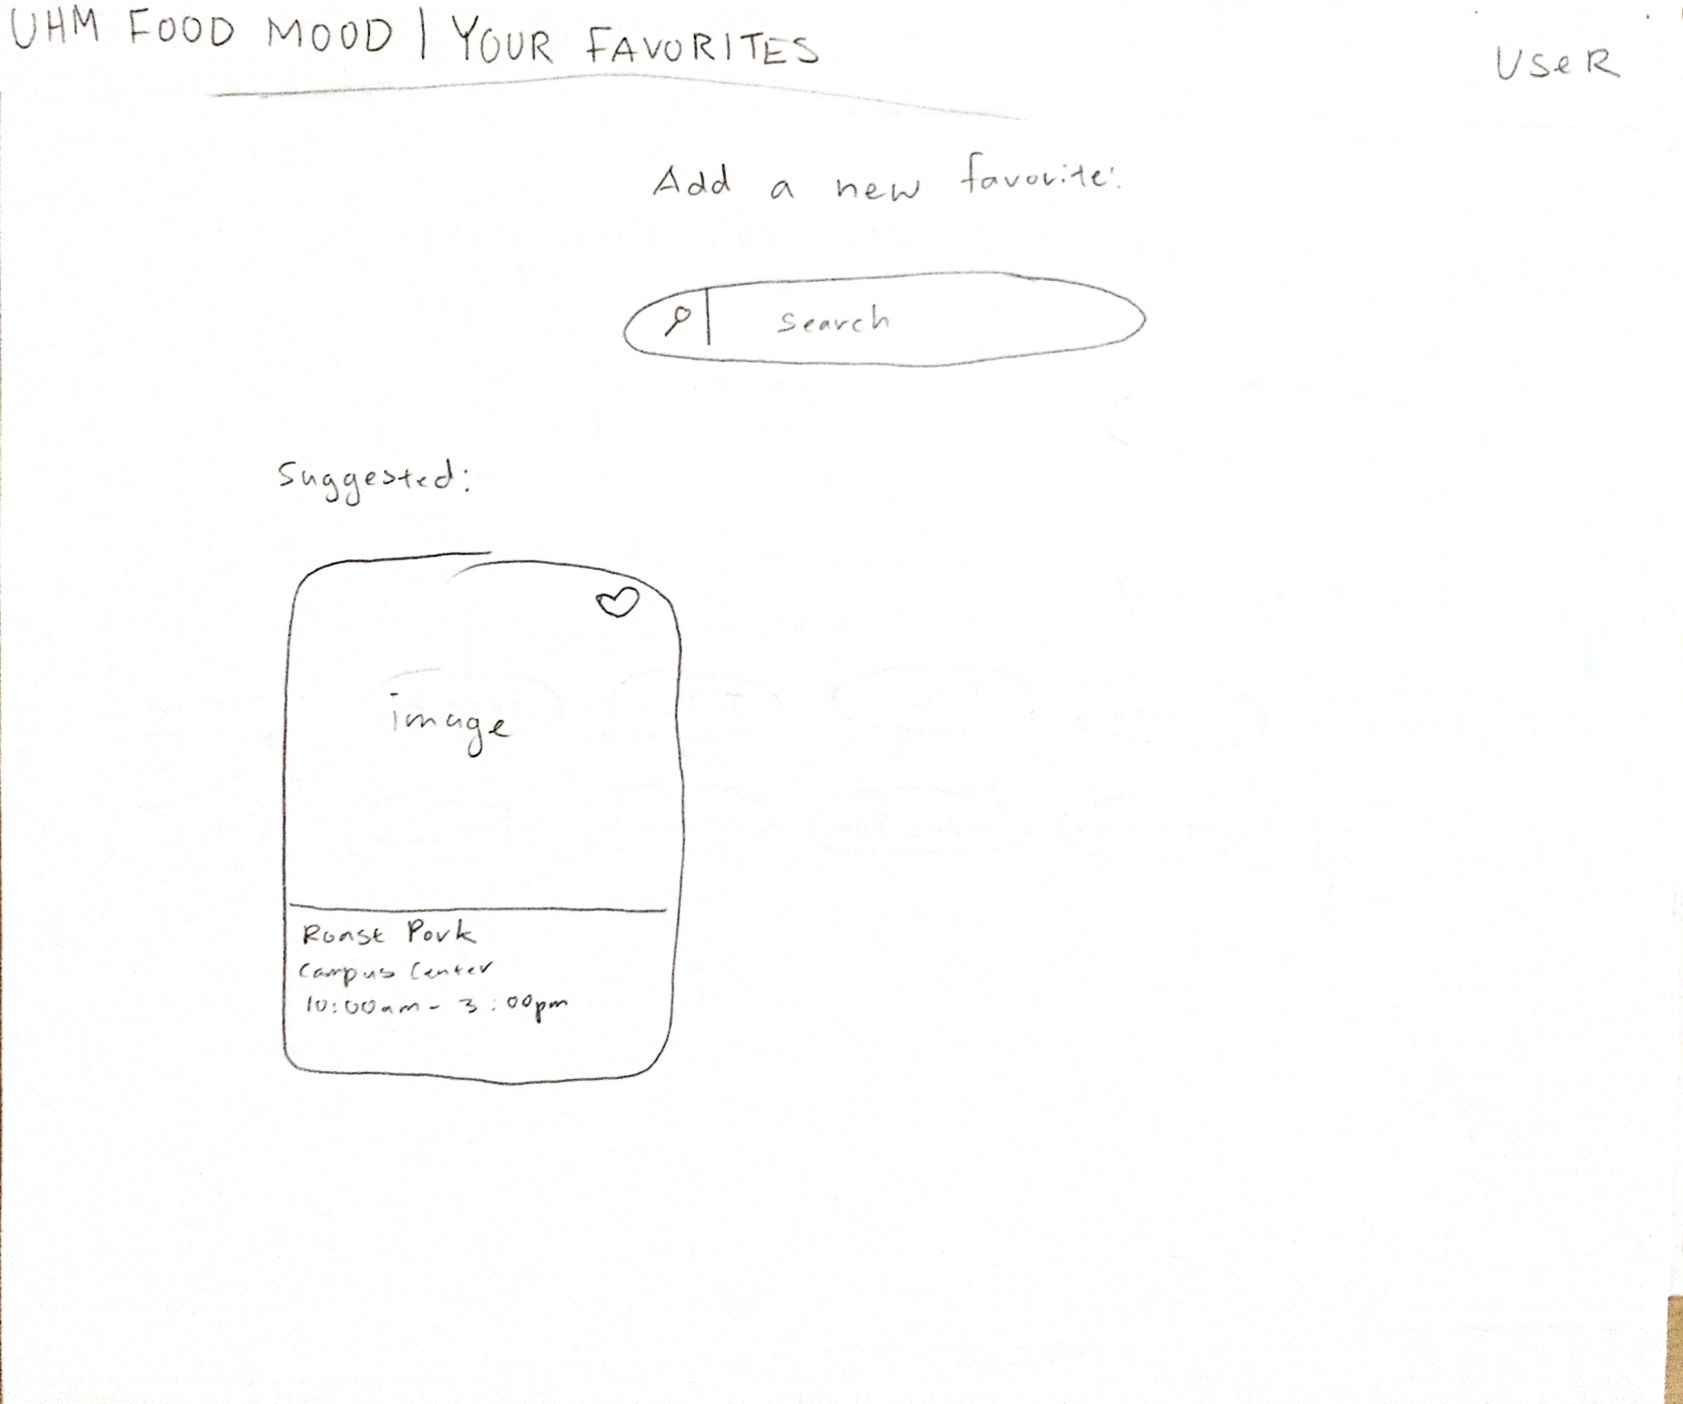 UHM FOOD MOOD | YOUR FAVORITES
USeR
Add a new favorite:
search
Suggested:
image
Roast Pork
Campus Center
10:00am - 3:00pm